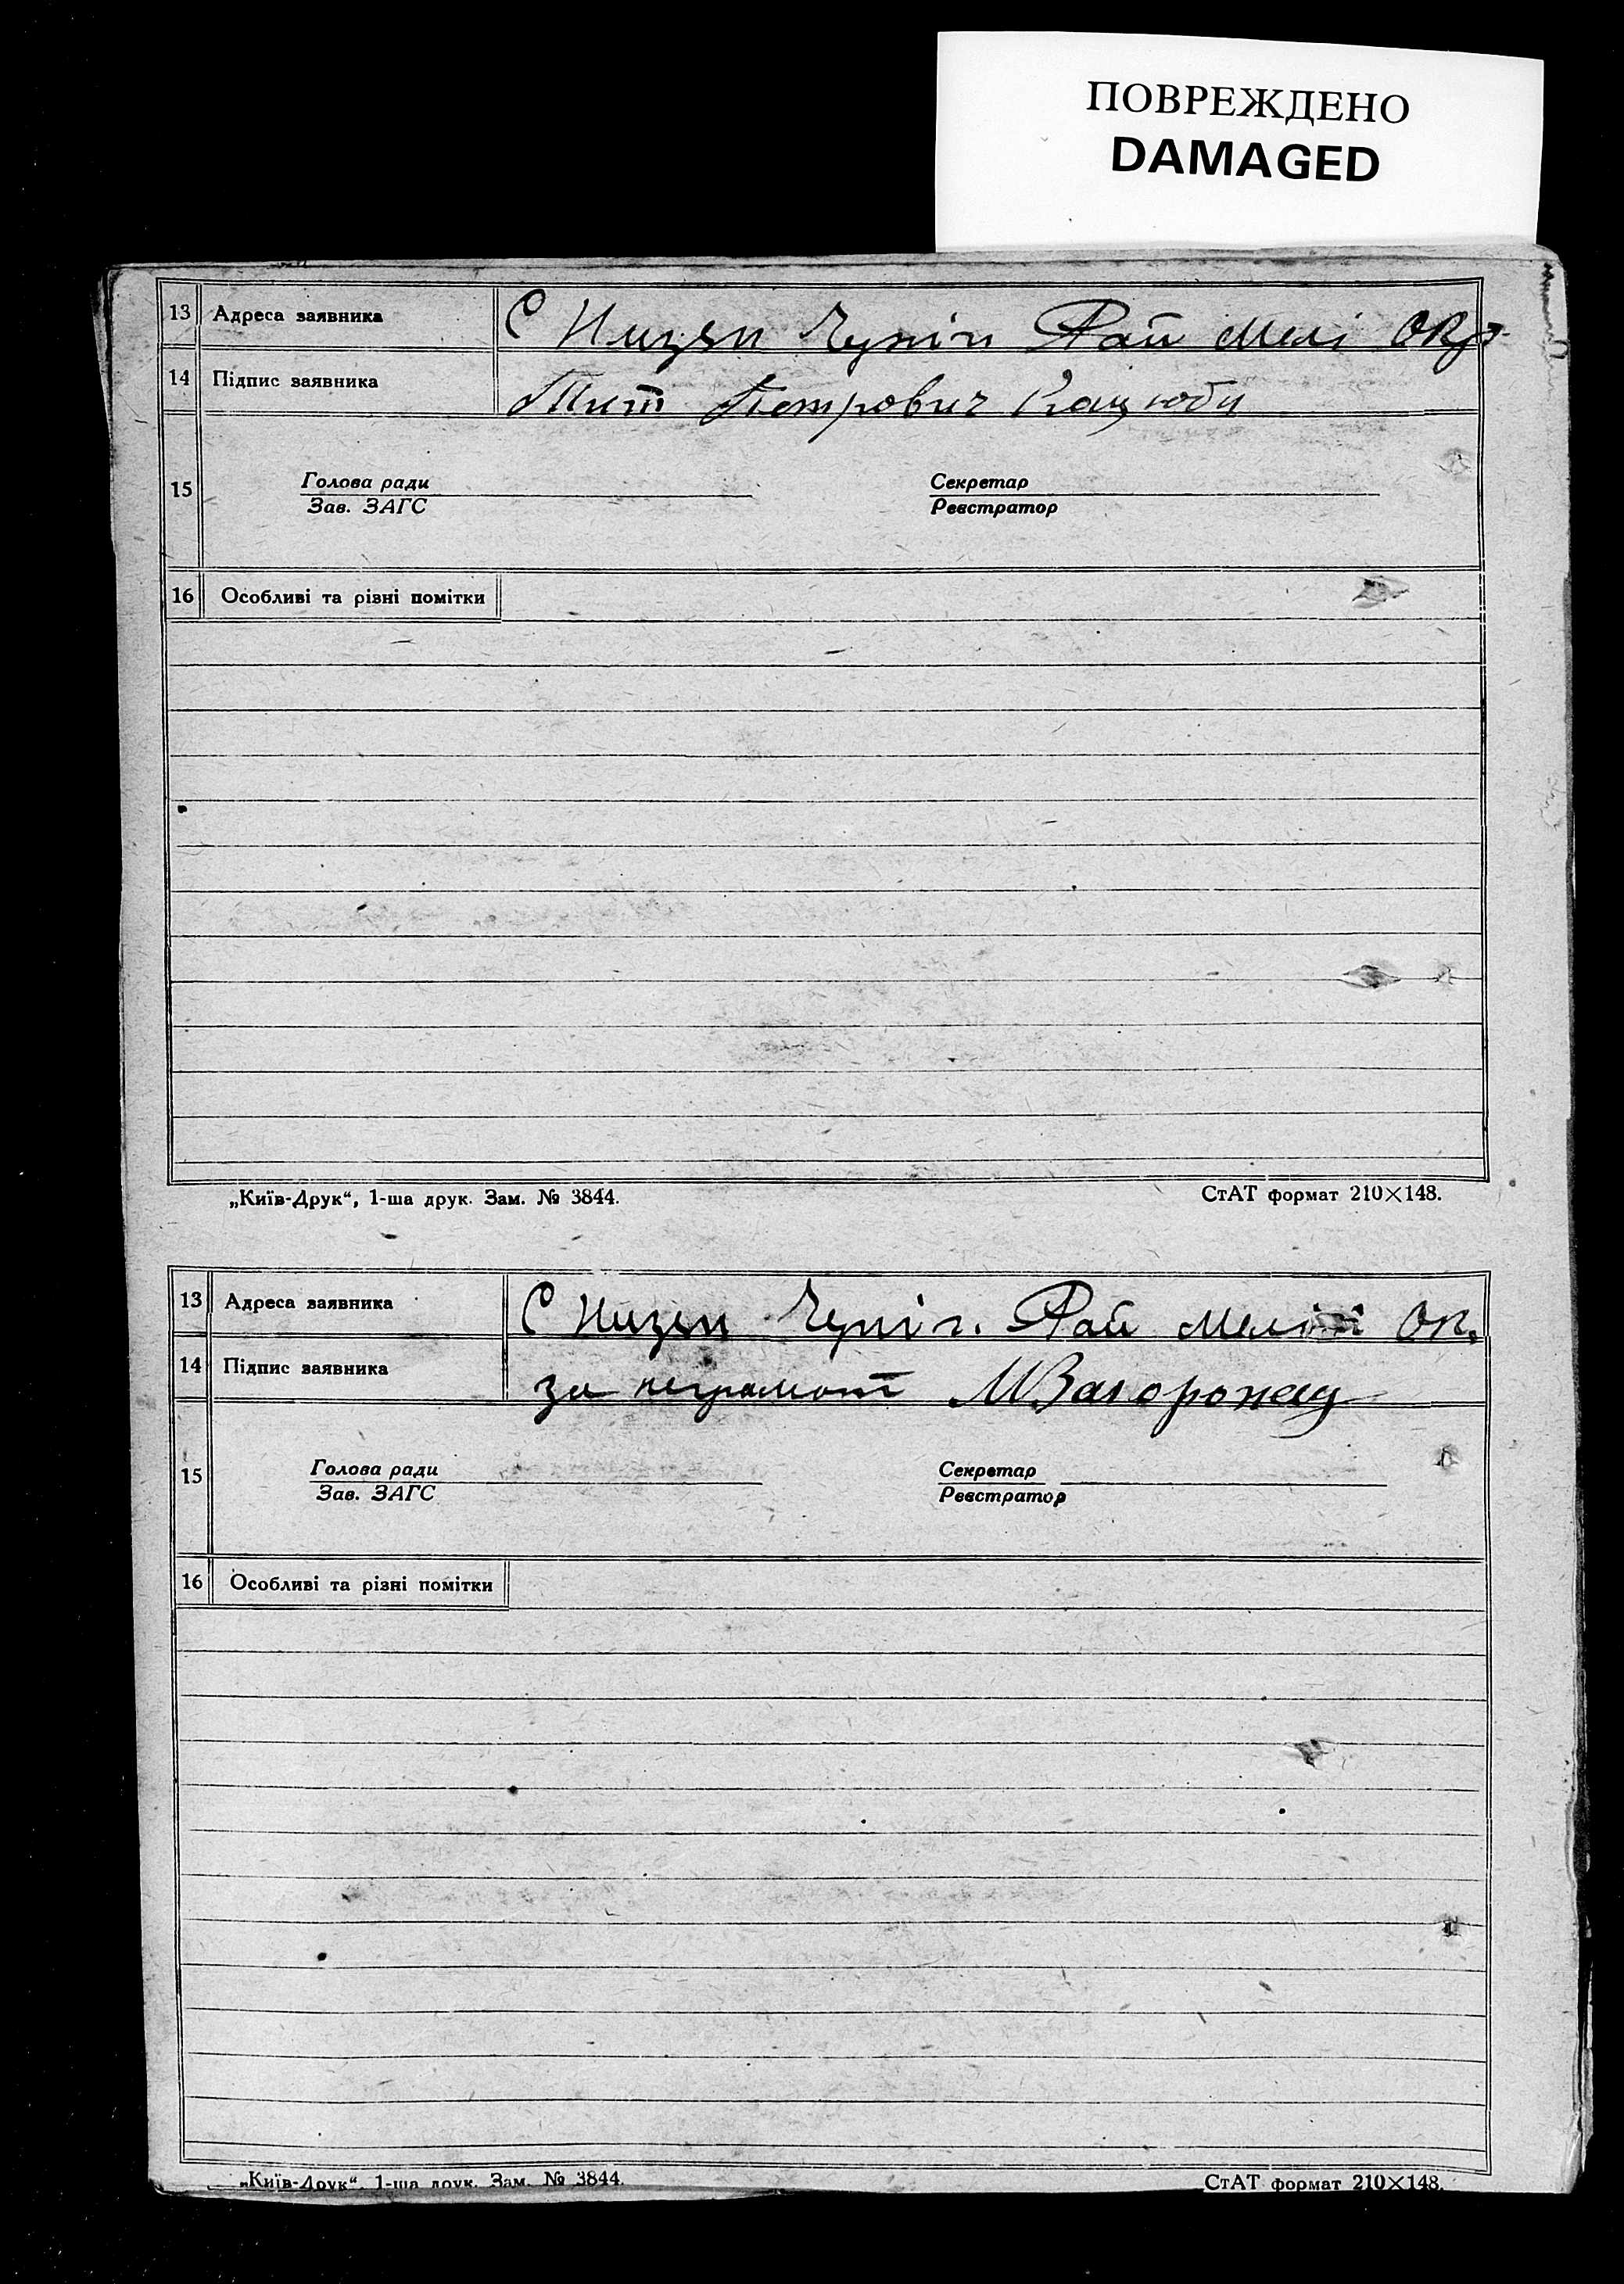 ПОВРЕЖДЕНО
DAMAGED
13 Адреса заявника С Низян Чупіч Рай Мелі Окр
14 Підпис заявника Тит Петрович Кацюба
15 Голова ради Секретар
Зав. ЗАГС Реєстратор
16 Особливі та різні помітки
„Київ-Друк“, 1-ша друк. Зам. № 3844. СтАТ формат 210×148.
13 Адреса заявника С Низян Чупіч. Рай Ок.
14 Підпис заявника за неграмот
15 Голова ради Секретар
Зав. ЗАГС Реєстратор
16 Особливі та різні помітки
„Київ-Друк“, 1-ша друк. Зам. № 3844. СтАТ формат 210×148.